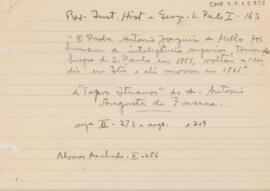 Rev. Inst. Hist e Geogr. S. Paulo I - 163
"O Padre Antonio Joaquim de Mello foi
homem de inteligência superior, tornou
bispo de S. Paulo em 1851, voltou a resi
diu em Itu e ali morreu em 1861"
d "Tapos Ituanos" do dr. Antonio
Augusto da Fonseca.
II - 273 e segs. e 309
Alvaro Machado - II - 286